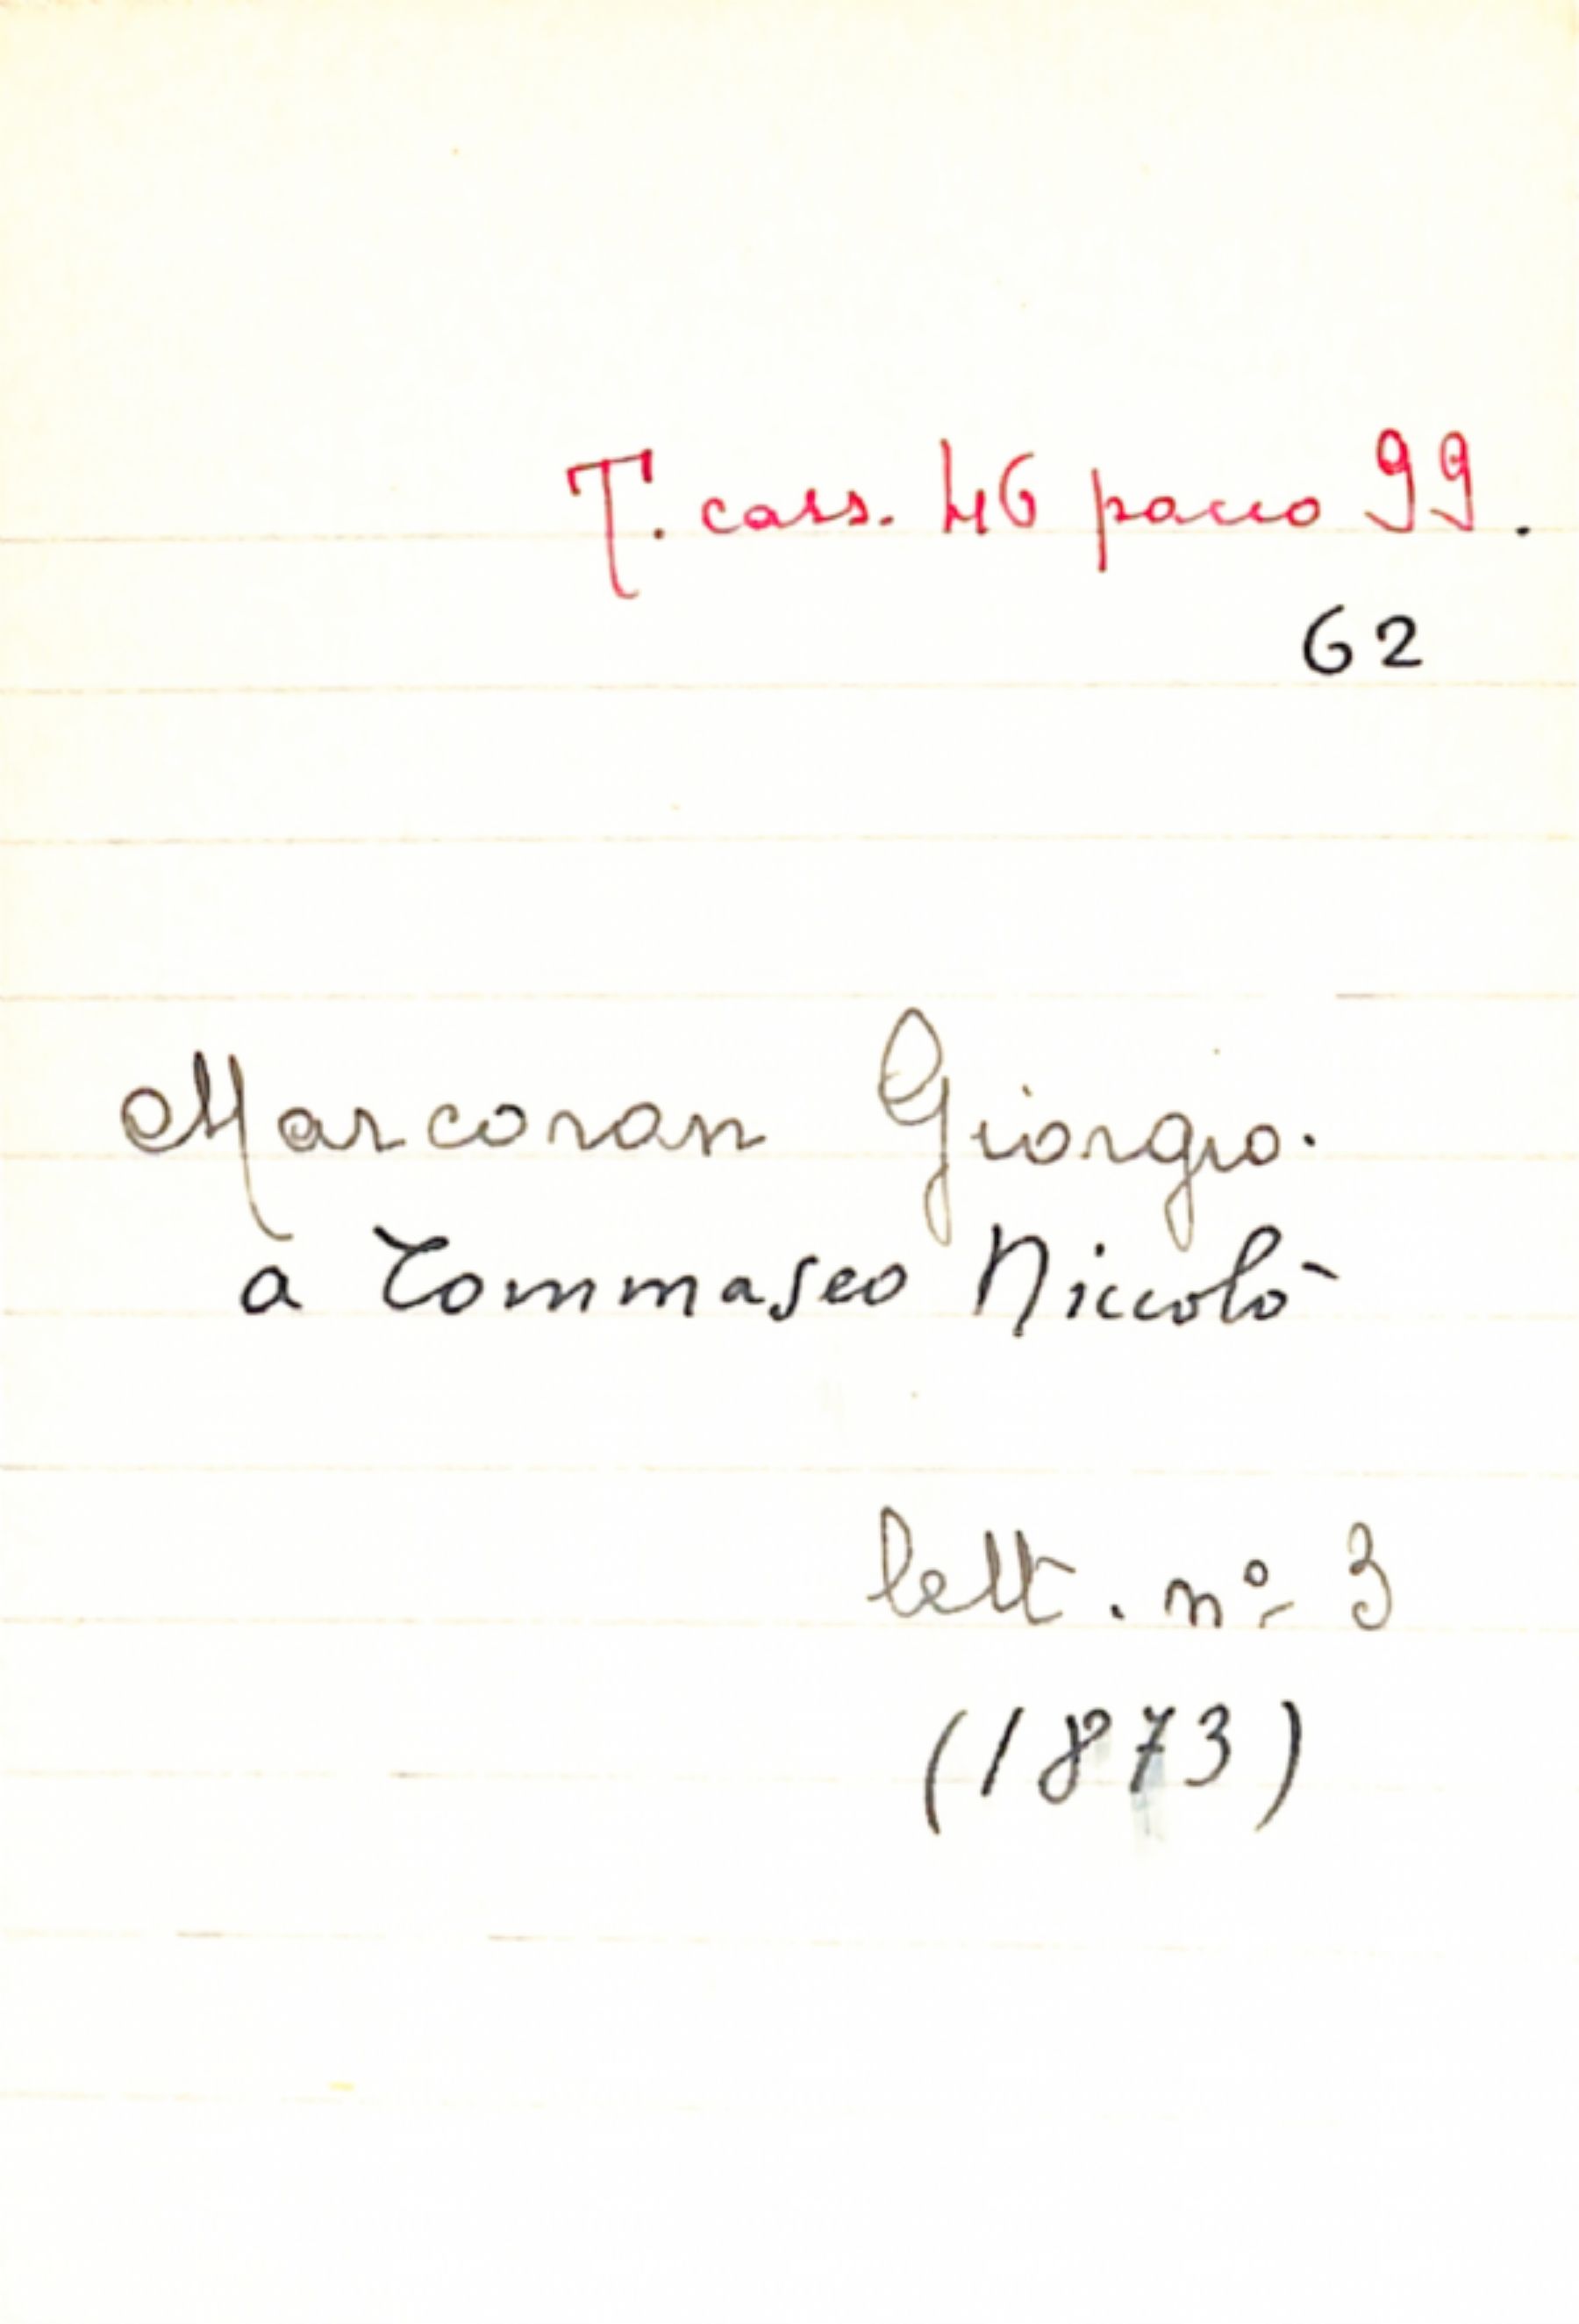 T. cass. 46 pacco 99.
62
Marcoran Giorgio.
a Tommaseo Niccolò
lett. nº 3
(1873)